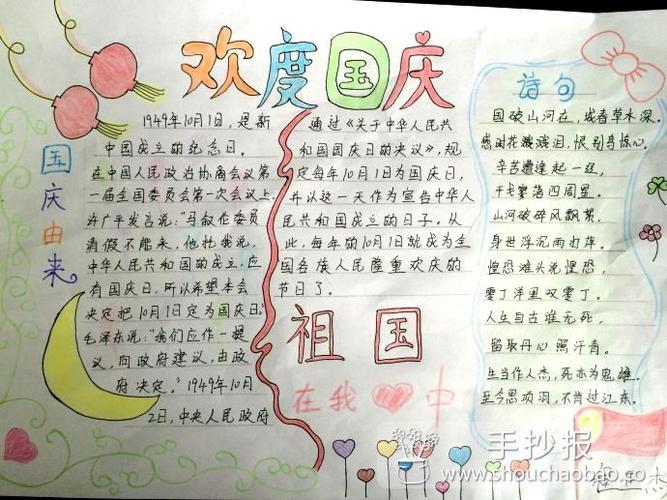 欢度国庆
国庆由来
1949年10月1日，是新
中国成立的纪念日。
在中国人民政治协商会议第
一届全国委员会第一次会议上，
许广平发言说："马叙伦委员
请假不能来，他托我说，
中华人民共和国的成立，应
有国庆日，所以希望本会
决定把10月1日定为国庆日。"
毛泽东说："我们应作一提
议，向政府建议，由政
府决定。"1949年10月
2日，中央人民政府
通过《关于中华人民共
和国国庆日的决议》，规
定每年10月1日为国庆日，
并以这一天作为宣告中华人
民共和国成立的日子。从
此，每年的10月1日就成为全
国各族人民隆重欢庆的
节日了。
祖国
在我中
诗句
国破山河在，城春草木深。
感时花溅泪，恨别鸟惊心。
辛苦遭逢起一经，
干戈寥落四周星。
山河破碎风飘絮，
身世浮沉雨打萍。
惶恐滩头说惶恐，
零丁洋里叹零丁。
人生自古谁无死，
留取丹心照汗青。
生当作人杰，死亦为鬼雄。
至今思项羽，不肯过江东。
手抄报
www.shouchaobao.co